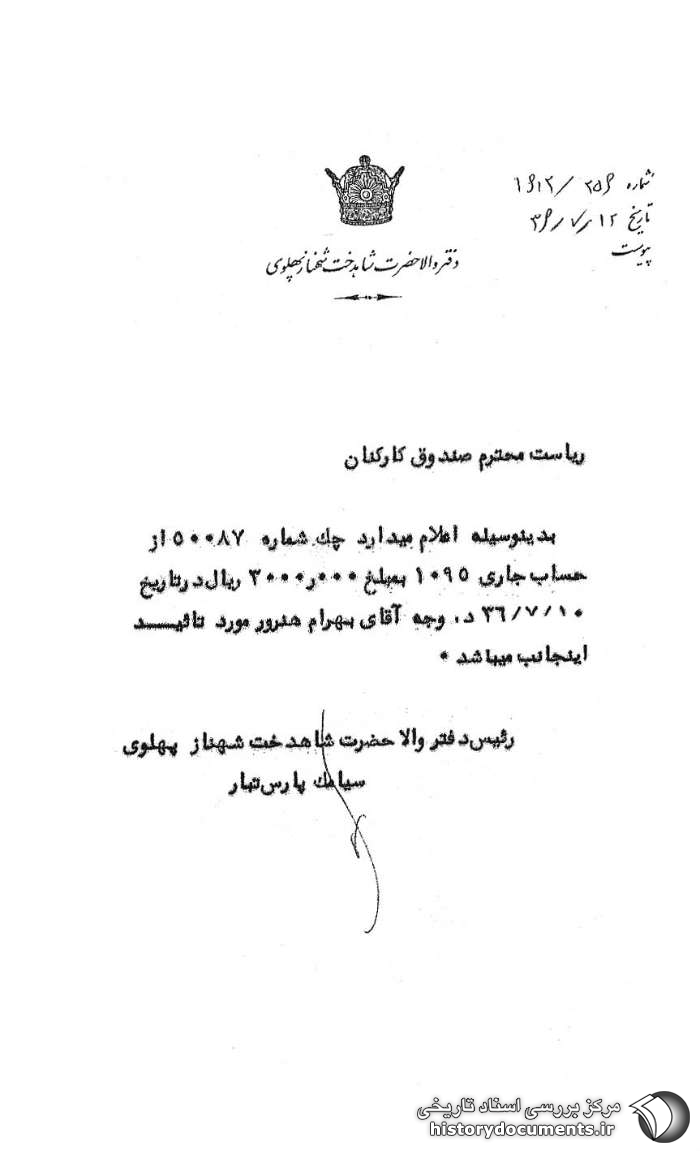 شماره ۲۵۶/۱۶۱۲
تاریخ ۳۶/۷/۱۲
پیوست
دفتر والاحضرت شاهدخت شهناز پهلوی
ریاست محترم صندوق کارکنان
بدینوسیله اعلام میدارد چك شماره ۵۰۰۸۷ از
حساب جاری ۱۰۹۵ بمبلغ ۳۰۰۰ر۰۰۰ ریال درتاریخ
۳۶/۷/۱۰ د. وجه آقای بهرام هنرور مورد تائیـــد
اینجانب میباشد .
رئیس دفتر والا حضرت شاهدخت شهناز پهلوی
سیامك پارس تبار
مرکز بررسی اسناد تاریخی
historydocuments.ir